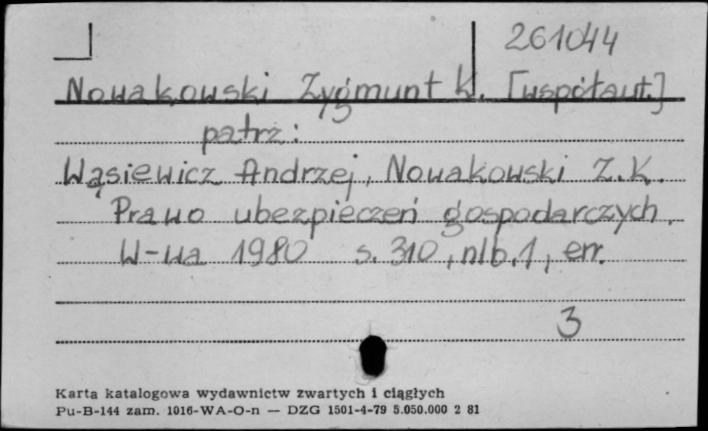 261044
Nowakowski Zygmunt K. [współaut.]
patrz:
Wąsiewicz Andrzej, Nowakowski Z.K.
Prawo ubezpieczeń gospodarczych.
W-wa 1980 s. 310, nlb. 1, err.
3
Karta katalogowa wydawnictw zwartych i ciągłych
Pu-B-144 zam. 1016-WA-O-n — DZG 1501-4-79 5.050.000 2 81